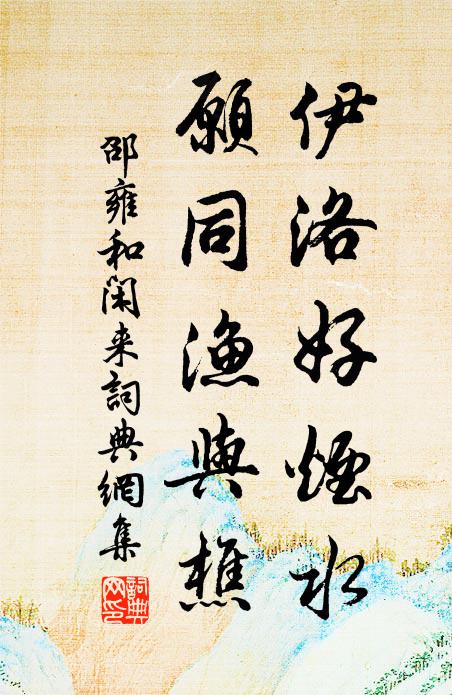 伊洛好煙水
願同漁與樵
邵雍和閑来詞典網集
詞典网印